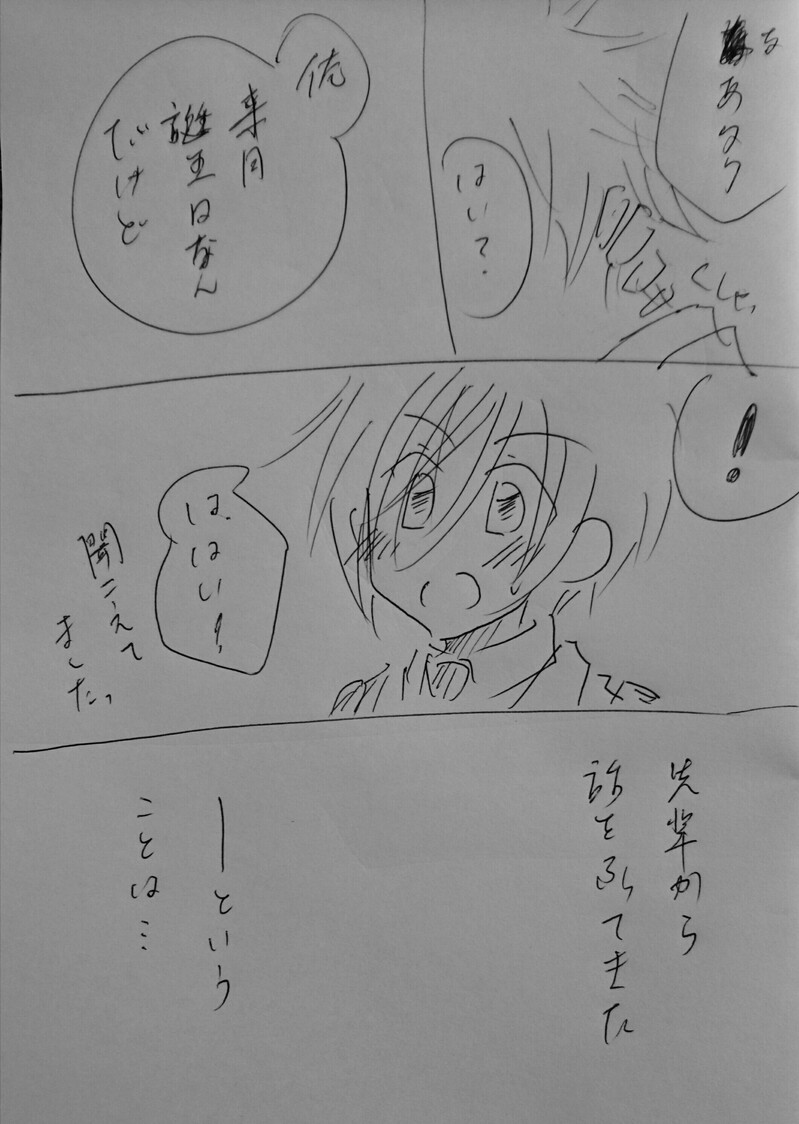 なあタク
くしゃっ
はいて?
俺
来月
誕生日なん
だけど
!
は、はい!
聞こえて
ました。
先輩から
話を振てきた
ーという
ことは…